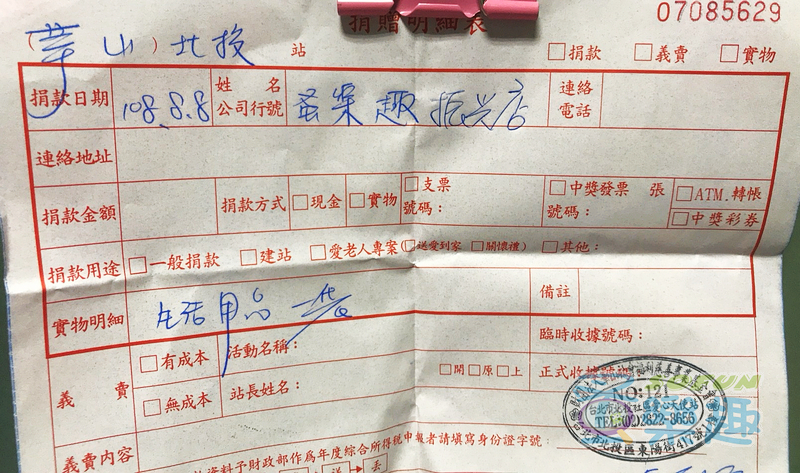 捐贈明細表 07085629
(華山)北投 站 □捐款 □義賣 □實物
捐款日期 108.8.8 姓名 公司行號 蚤樂趣振兴店 連絡電話
連絡地址
捐款金額 捐款方式 □現金 □實物 □支票 號碼： □中獎發票 張 號碼： □ATM.轉帳 □中獎彩券
捐款用途 □一般捐款 □建站 □愛老人專案(□送愛到家 □關懷禮) □其他：
實物明細 生活用品 一袋 備註
義賣 □有成本 活動名稱： 臨時收據號碼：
□無成本 站長姓名： □開□原□上 正式收據號碼
NO:121
台北市北投社區愛心天使站
TEL:(02)2822-8656
台北市北投區東陽街417號1樓
義賣內容
資料予財政部作為年度綜合所得稅申報者請填寫身份證字號：